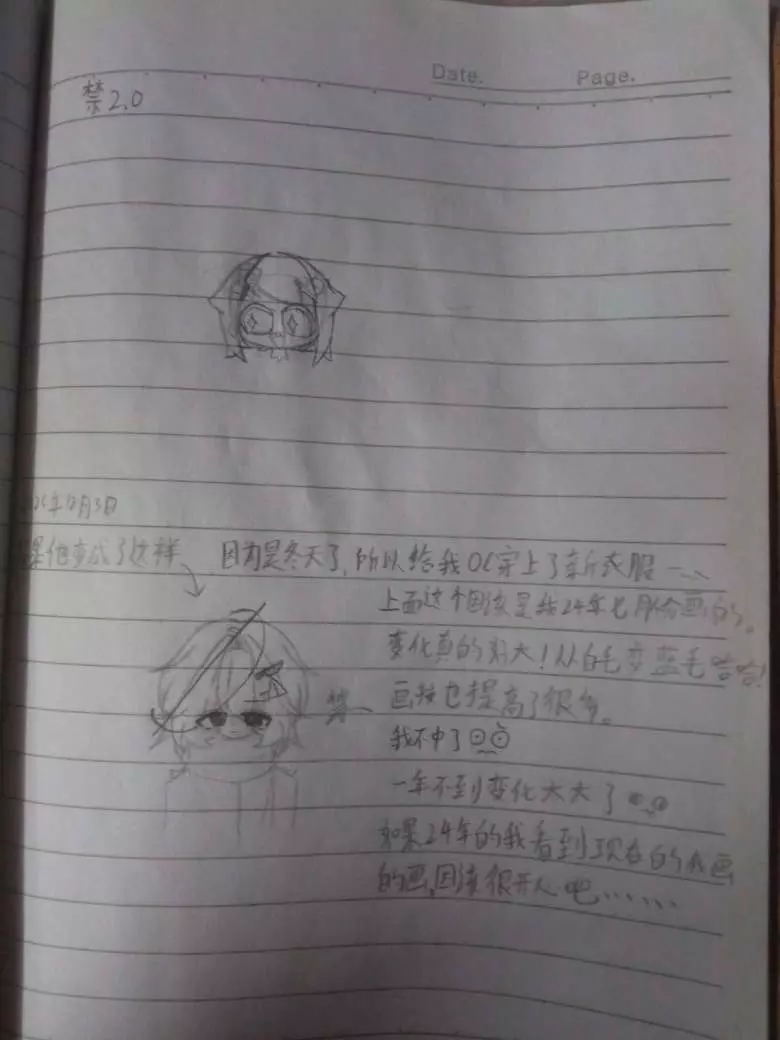 Date. Page.
禁2.0
年12月3日
他变成了这样
因为是冬天了，所以给我OC穿上了新衣服
上面这个因该是我24年七月份画的。
变化真的好大！从白毛变蓝毛哈哈！
画技也提高了很多。
我不中了
一年不到变化太大了
如果24年的我看到现在的我画
的画，因该很开心吧……